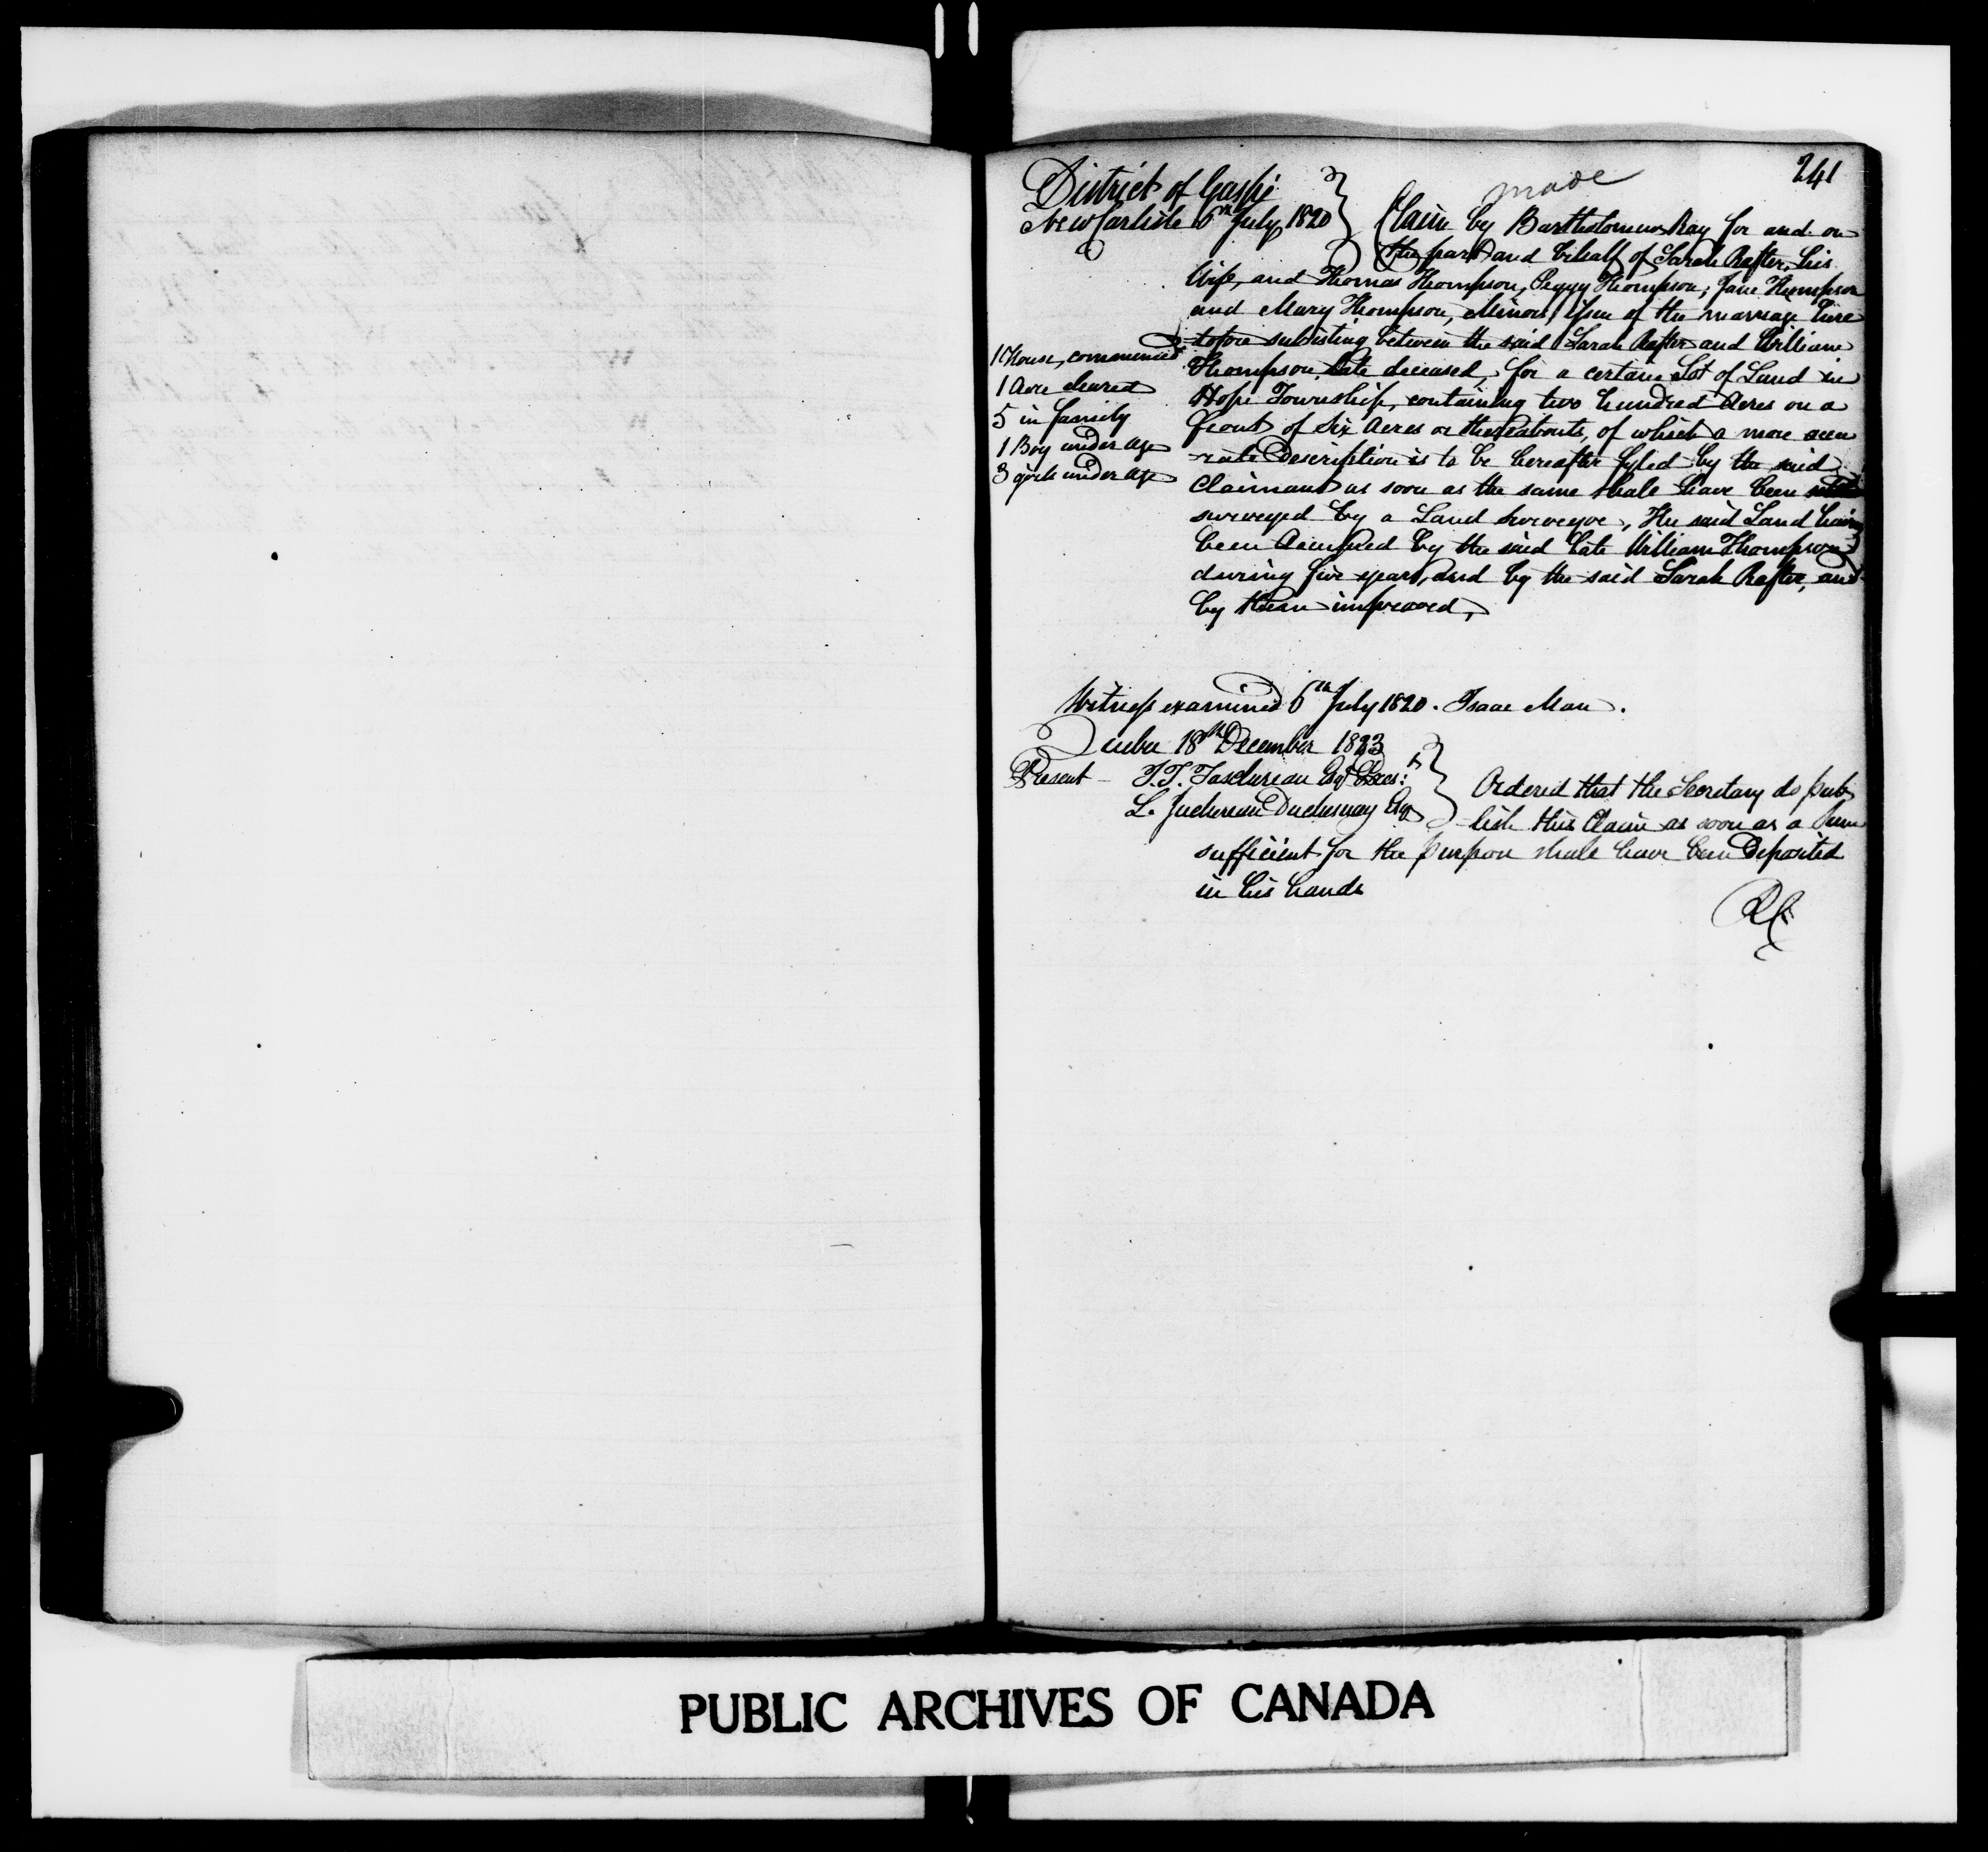 241
made
District of Gaspé
New Carlisle 6th July 1820
Claim by Bartholomew Ray for and on
the part and behalf of Sarah Rafter, his
Wife, and Thomas Thompson, Peggy Thompson, Jane Thompson
and Mary Thompson, Minors, Issue of the marriage here
tofore subsisting between the said Sarah Rafter and William
Thompson, late deceased, for a certain Lot of Land in
Hope Township, containing two hundred Acres on a
front of Six Acres or thereabouts, of which a more accu
-rate Description is to be hereafter fyled by the said
Claimant as soon as the same shall have been
surveyed by a Land Surveyor, The said Land having
been occupied by the said late William Thompson
during five years, and by the said Sarah Rafter, and
by them improved,
1 House, commenced
1 Acre cleared
5 in family
1 Boy under age
3 girls under age
Witness examined 6th July 1820. Isaac Man.
Quebec 18th December 1823
Present - T.T. Taschereau Esqr Pres:t
L. Juchereau Duchesnay Esq
Ordered that the Secretary do pub
-lish this Claim as soon as a Sum
sufficient for the purpose shall have been Deposited
in his hands
PUBLIC ARCHIVES OF CANADA